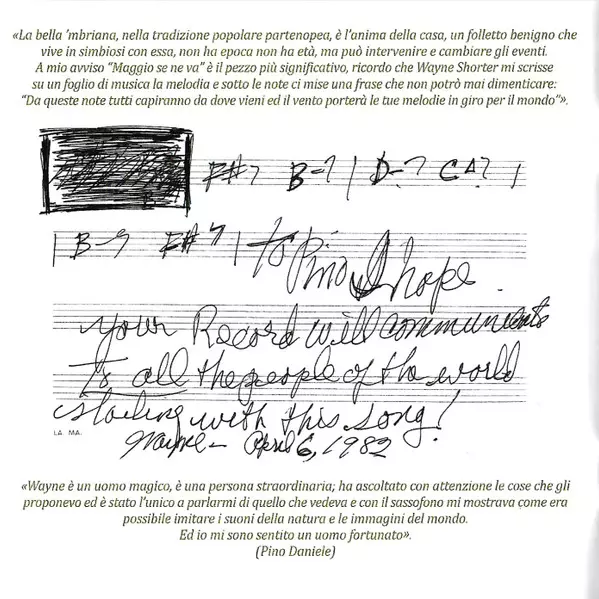 «La bella 'mbriana, nella tradizione popolare partenopea, è l'anima della casa, un folletto benigno che
vive in simbiosi con essa, non ha epoca non ha età, ma può intervenire e cambiare gli eventi.
A mio avviso "Maggio se ne va" è il pezzo più significativo, ricordo che Wayne Shorter mi scrisse
su un foglio di musica la melodia e sotto le note ci mise una frase che non potrò mai dimenticare:
"Da queste note tutti capiranno da dove vieni ed il vento porterà le tue melodie in giro per il mondo"».
F#7 B-7 | D-7 C△7 |
| B-9 F#9 | To Pino I hope
your Record will communicate
to all the people of the world
starting with this song!
LA. MA.
Wayne – April 6, 1982
«Wayne è un uomo magico, è una persona straordinaria; ha ascoltato con attenzione le cose che gli
proponevo ed è stato l'unico a parlarmi di quello che vedeva e con il sassofono mi mostrava come era
possibile imitare i suoni della natura e le immagini del mondo.
Ed io mi sono sentito un uomo fortunato».
(Pino Daniele)